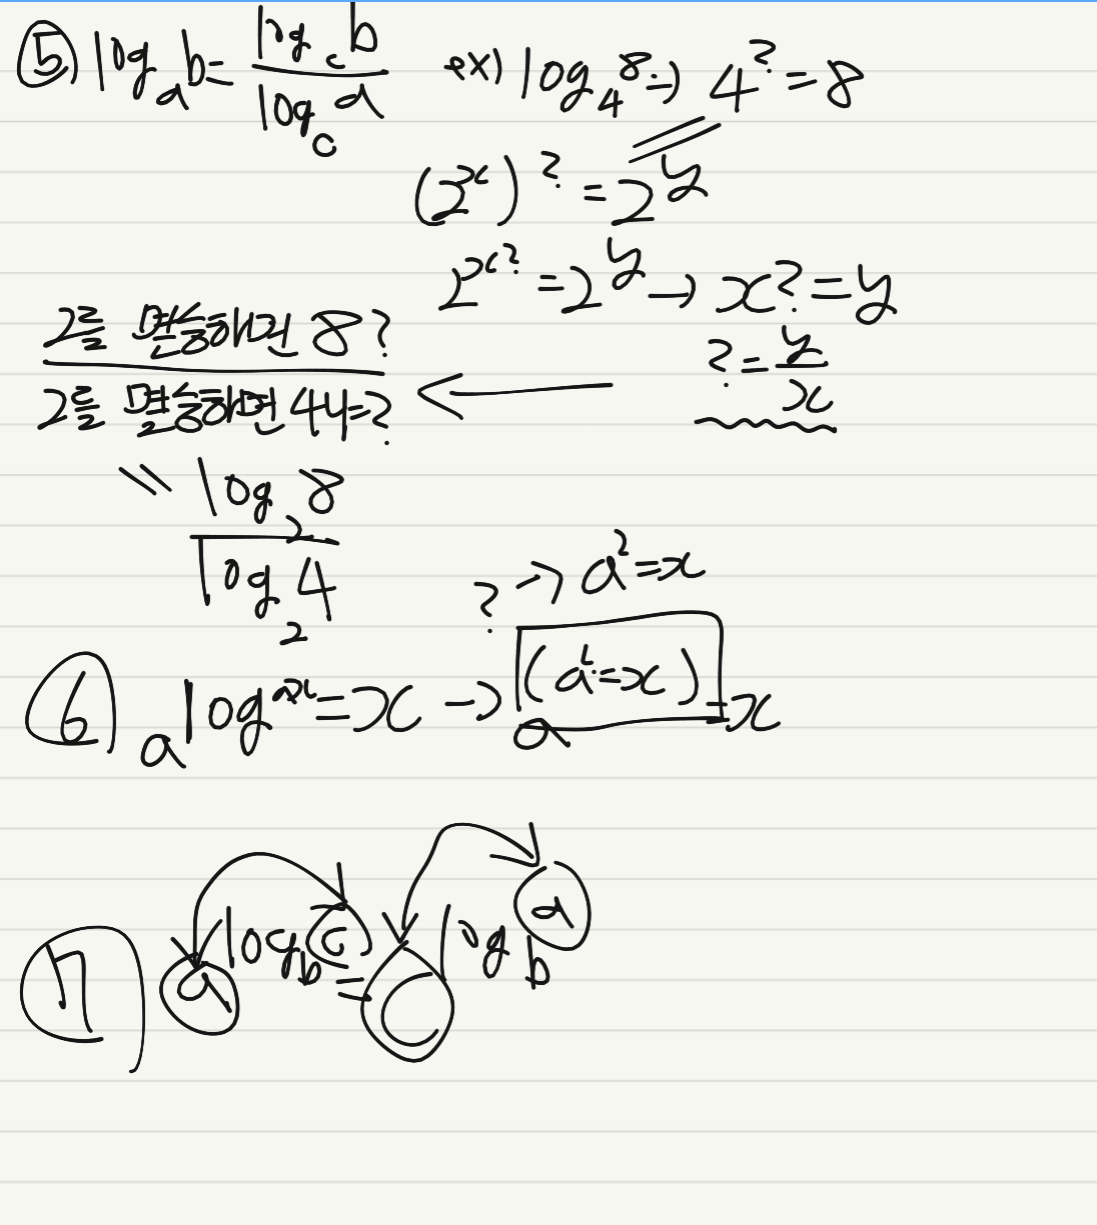 ⑤ log_a b = log_c b / log_c a   ex) log_4 8 → 4^? = 8
(2^x)^? = 2^y
2^x? = 2^y → x? = y
? = y/x
2를 몇승하면 8?
2를 몇승하면 44=?
= log_2 8 / log_2 4
? → a^2 = x
⑥ a^log^ax = x → a^(a^?=x) = x
⑦ a^log_b c = c^log_b a